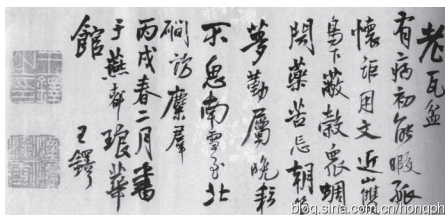 老瓦盆
有病初能暇孤
懷詎用文近崖
鳥下蔽穀眾蜩
聞藥苦忘朝
夢勤屬晚耘
不思南雪至北
磵訪麋群
丙戌春二月書
于蕪邨琅華
館 王鐸
blog.sina.com.cn/hongph